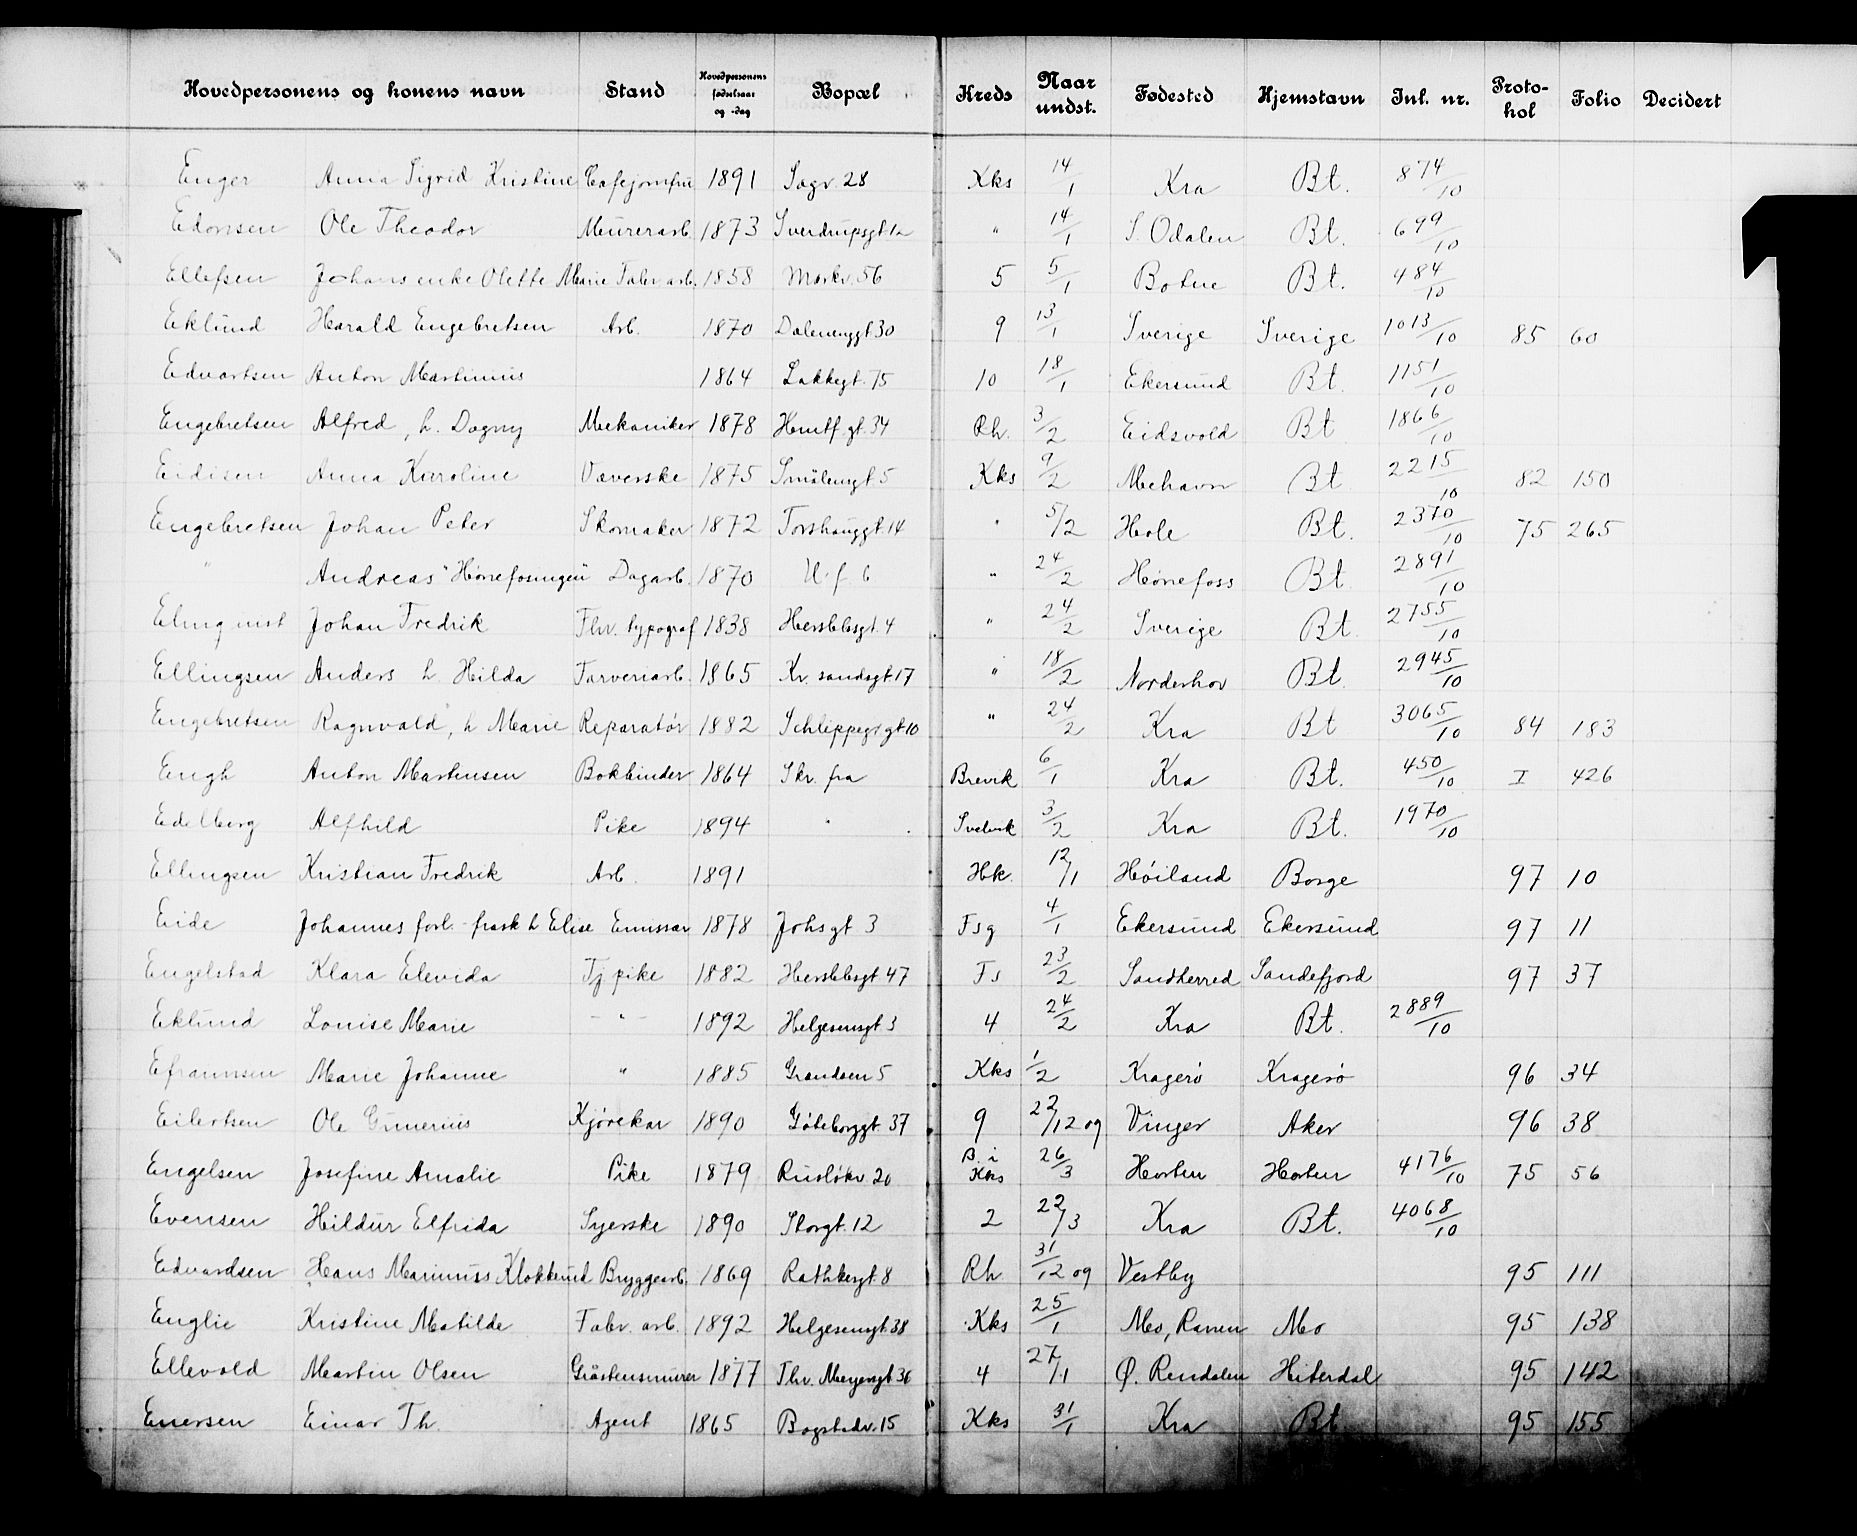 Hovedpersonens og konens navn Stand Hovedpersonens fødselsaar og -dag Bopæl Kreds Naar undst. Fødested Hjemstavn Inl. nr. Protokol Folio Decidert
Enger Anna Sigrid Kristine Cafejomfru 1891 Sagv. 28 Kks 14/1 Kra Bt. 874/10
Edonsen Ole Theodor Murerarb. 1873 Sverdrupsgt 12 " 14/1 S. Odalen Bt. 699/10
Ellefsen Johans enke Olette Marie Fabr arb. 1858 Markv. 56 5 5/1 Botne Bt. 484/10
Eklund Harald Engebretsen Arb. 1870 Dalenenggt 30 9 13/1 Sverige Sverige 1013/10 85 60
Edvartsen Anton Martinius 1864 Lakkegt. 75 10 18/1 Ekersund Bt. 1151/10
Engebretsen Alfred, h. Dagny Mekaniker 1878 Hmtf. gt. 34 Rh. 3/2 Eidsvold Bt 1866/10
Eidisen Anna Karoline Væverske 1875 Smålengt 5 Kks 9/2 Mehavn Bt 2215/10 82 150
Engebretsen Johan Peter Skomaker 1872 Torshauggt 14 " 5/2 Hole Bt. 2370/10 75 265
" Andreas "Hønefosingen" Dagarb. 1870 U. f. 6 " 24/2 Hønefoss Bt. 2891/10
Elmquist Johan Fredrik Fhv. typograf 1838 Herslebsgt. 4 " 24/2 Sverige Bt. 2755/10
Ellingsen Anders h Hilda Farveriarb. 1865 Kr. sandsgt. 17 " 18/2 Norderhov Bt. 2945/10
Engebretsen Ragnvald, h Marie Reparatør 1882 Schleppegr gt 10 " 24/2 Kra Bt 3065/10 84 183
Engh Anton Martinsen Bokbinder 1864 Skr. fra Brevik 6/1 Kra Bt. 450/10 I 426
Edelberg Alfhild Pike 1894 " Svelvik 3/2 Kra Bt. 1970/10
Ellingsen Kristian Fredrik Arb. 1891 Hk. 12/1 Høiland Borge 97 10
Eide Johannes forl. - frask h Elise Emissær 1878 Johsgt 3 Fsg 4/1 Ekersund Ekersund 97 11
Engelstad Klara Elevida Tj pike 1882 Herslebsgt 47 Fs 23/2 Sandherred Sandefjord 97 37
Eklund Louise Marie - " - 1892 Helgesensgt 3 4 24/2 Kra Bt. 2889/10
Efraimsen Marie Johanne " 1885 Grændsen 5 Kks 1/2 Kragerø Kragerø 96 34
Eilertsen Ole Gunerius Kjørekar 1890 Göteborggt. 37 9 22/12 09 Vinger Aker 96 38
Engelsen Josefine Amalie Pike 1879 Ruseløkv. 20 B. i Kks 26/3 Horten Horten 4176/10 75 56
Evensen Hildur Elfrida Syerske 1890 Storgt. 12 2 22/3 Kra Bt. 4068/10
Edvardsen Hans Marinius Klokkerud Bryggearb. 1869 Rathkesgt 8 Rh 31/12 09 Vestby 95 111
Englie Kristine Matilde Fabr. arb. 1892 Helgesensgt. 38 Kks 25/1 Mo, Ranen Mo 95 138
Ellevold Martin Olsen Gråstensmurer 1877 Thv. Meyersgt 36 4 27/1 Ø. Rendalen Hiterdal 95 142
Enersen Einar Th. Agent 1865 Bogstadv. 15 Kks 31/1 Kra Bt 95 155